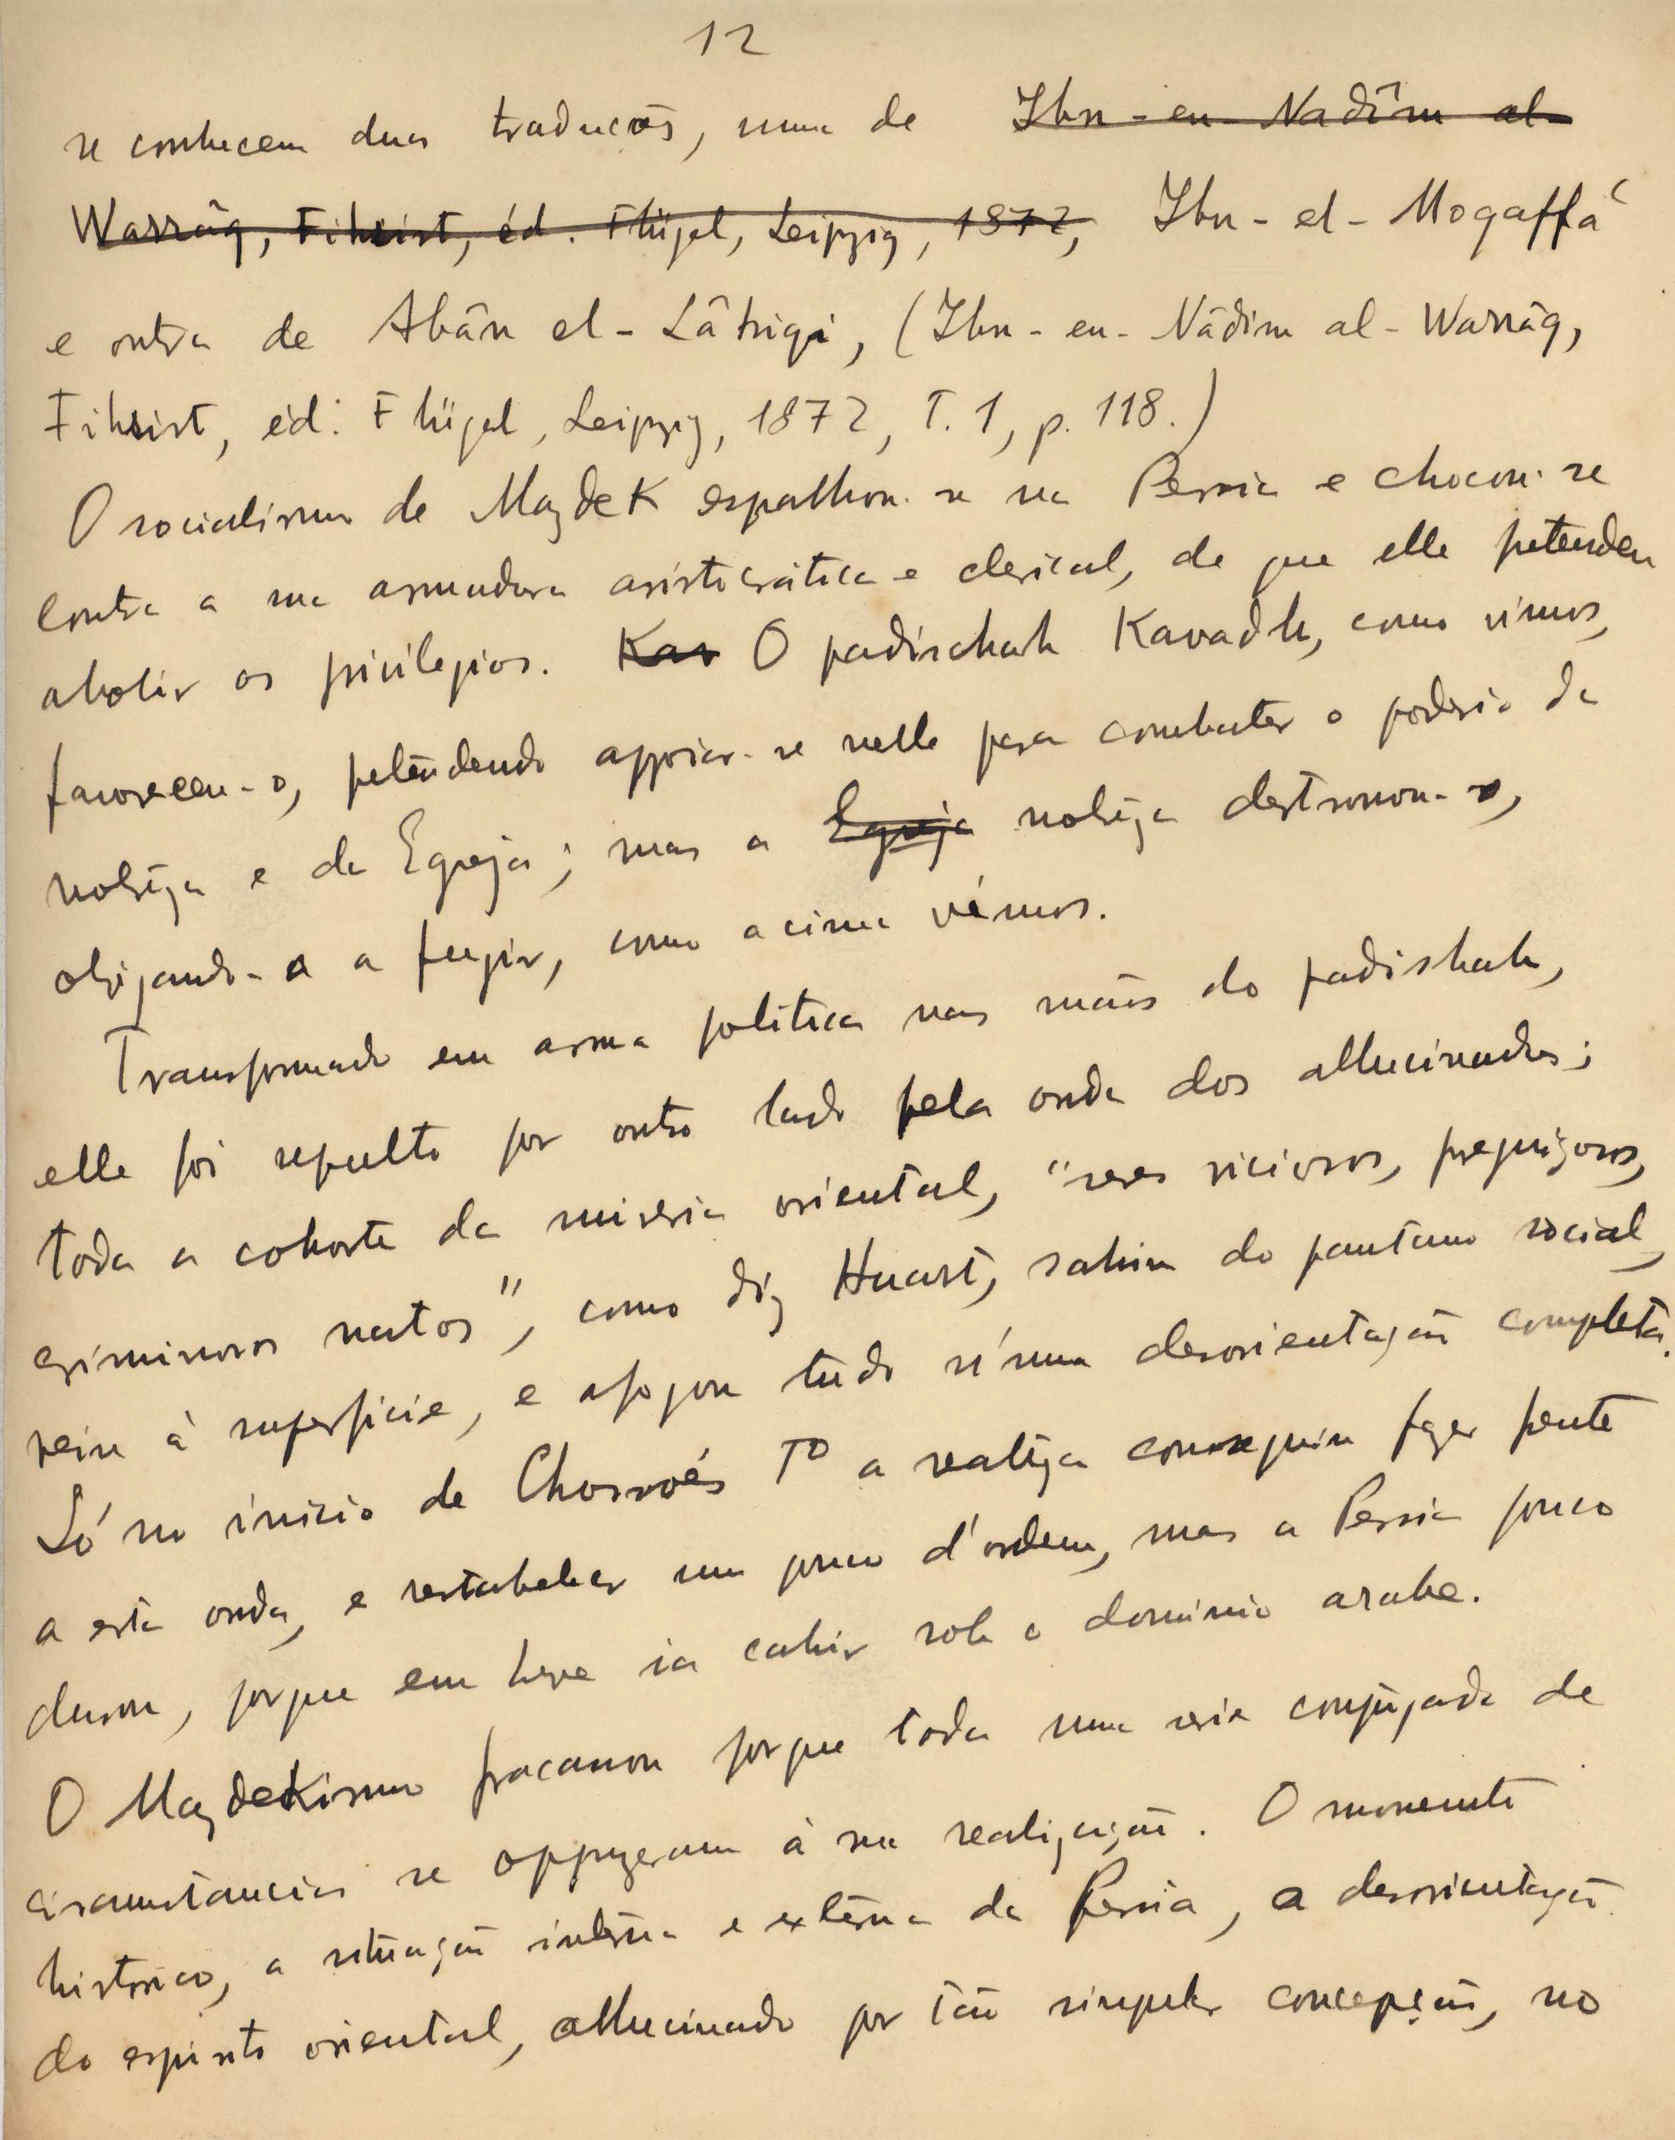 12
se conhecem duas traducões, uma de Ibn-en-Nadîm al-
Warrâq, Fihrist, éd. Flügel, Leipzig, 1872, Ibn-el-Mogaffá
e outra de Abân el-Lâhiqi, (Ibn-en-Nâdim al-Warrâq,
Fihrist, éd. Flügel, Leipzig, 1872, T. 1, p. 118.)
O socialismo de Mazdek espalhou-se na Persia e chocou-se
contra a sua armadura aristocrática e clerical, de que elle pretendeu
abolir os privilegios. Kav O padischah Kavadh, como vimos,
favoreceu-o, pretendendo appoiar-se nelle para combater o poderio da
nobrêza e da Egreja; mas a Egreja nobrêza destronou-o,
obrigando-o a fugir, como acima vimos.
Transformado em arma politica nas mãos do padishah,
elle foi sepulto por outro lado pela onda dos allucinados;
toda a cohorte da miseria oriental, "seres viciosos, preguiçosos,
criminosos natos", como diz Huart, sahiu do pantano social,
veiu á superficie, e afogou tudo n'uma desorientação completa.
Só no inicio de Chosroés Iº a realêza conseguiu fazer frente
a esta onda, e restabelecer um pouco d'ordem, mas a Persia pouco
durou, porque em breve ia cahir sob o dominio arabe.
O Mazdekismo fracassou porque toda uma serie conjugada de
circumstancias se oppuzeram á sua realização. O momento
historico, a situação interna e externa da Persia, a desorientação
do espirito oriental, allucinado por tão singular concepção, no